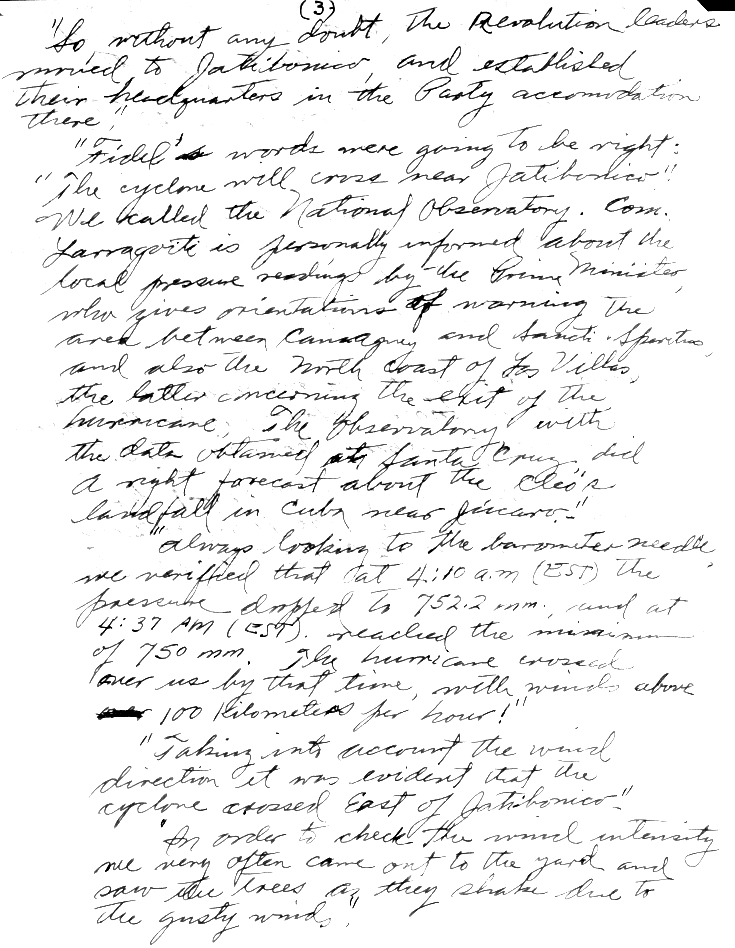 (3)
"So, without any doubt, the Revolution leaders
moved to Jatibonico, and established
their headquarters in the Party accomodation
there."
"Fidel's words were going to be right:
"The cyclone will cross near Jatibonico"!
We called the National Observatory. Com.
Larragoite is personally informed about the
local pressure readings by the Prime Minister,
who gives orientations of warning the
area between Camaguey and Sancti-Spiritus,
and also the North coast of Las Villas,
the latter concerning the exit of the
hurricane. The Observatory with
the data obtained at Santa Cruz, did
a right forecast about the Cleo's
landfall in Cuba near Júcaro."
"Always looking to the barometer needle,
we verified that at 4:10 a.m (EST) the
pressure dropped to 752.2 mm., and at
4:37 AM (EST). reached the minimum
of 750 mm. The hurricane crossed
over us by that time, with winds above
100 kilometers per hour!"
"Taking into account the wind
direction it was evident that the
cyclone crossed East of Jatibonico."
"In order to check the wind intensity
we very often came out to the yard and
saw the trees as they shake due to
the gusty winds."